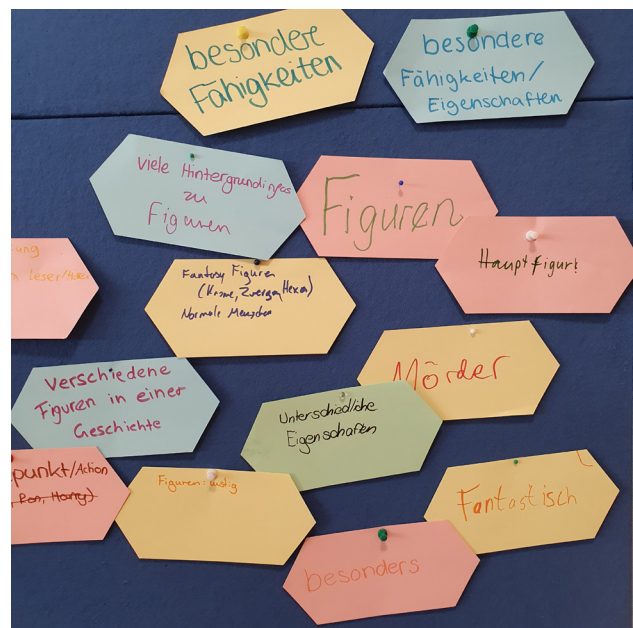 besondere
Fähigkeiten
besondere
Fähigkeiten/
Eigenschaften
viele Hintergrundinfos
zu
Figuren
Figuren
Hauptfigur
ung
leser/
Fantasy Figuren
(Zwerge, Hexen)
Normale Menschen
Mörder
verschiedene
Figuren in einer
Geschichte
Unterschiedliche
Eigenschaften
punkt/Action
, Ron, Harry)
Figuren: lustig
Fantastisch
besonders